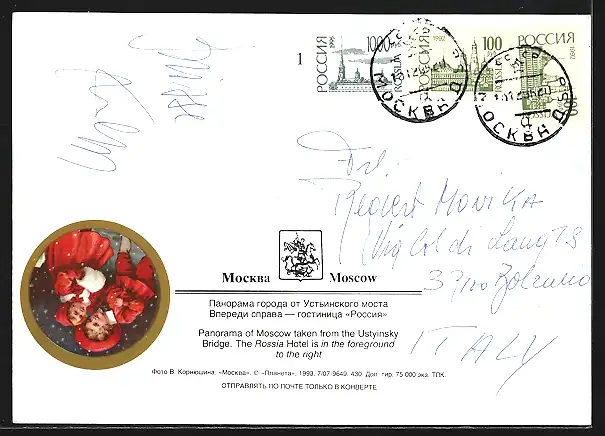 1
РОССИЯ 1995 1000 ROSSIJA
РОССИЯ 1992 100 ROSSIJA
РОССИЯ 1992 100
МОСКВА
МОСКВА
Dr.
Monika
Via Col di Lana
39100 Bolzano
ITALY
Москва Moscow
Панорама города от Устьинского моста
Впереди справа — гостиница «Россия»
Panorama of Moscow taken from the Ustyinsky
Bridge. The Rossia Hotel is in the foreground
to the right
Фото В. Корнюшина. «Москва». © «Планета», 1993. 7/07-9649. 430. Доп. тир. 75 000 экз. ТПК.
ОТПРАВЛЯТЬ ПО ПОЧТЕ ТОЛЬКО В КОНВЕРТЕ